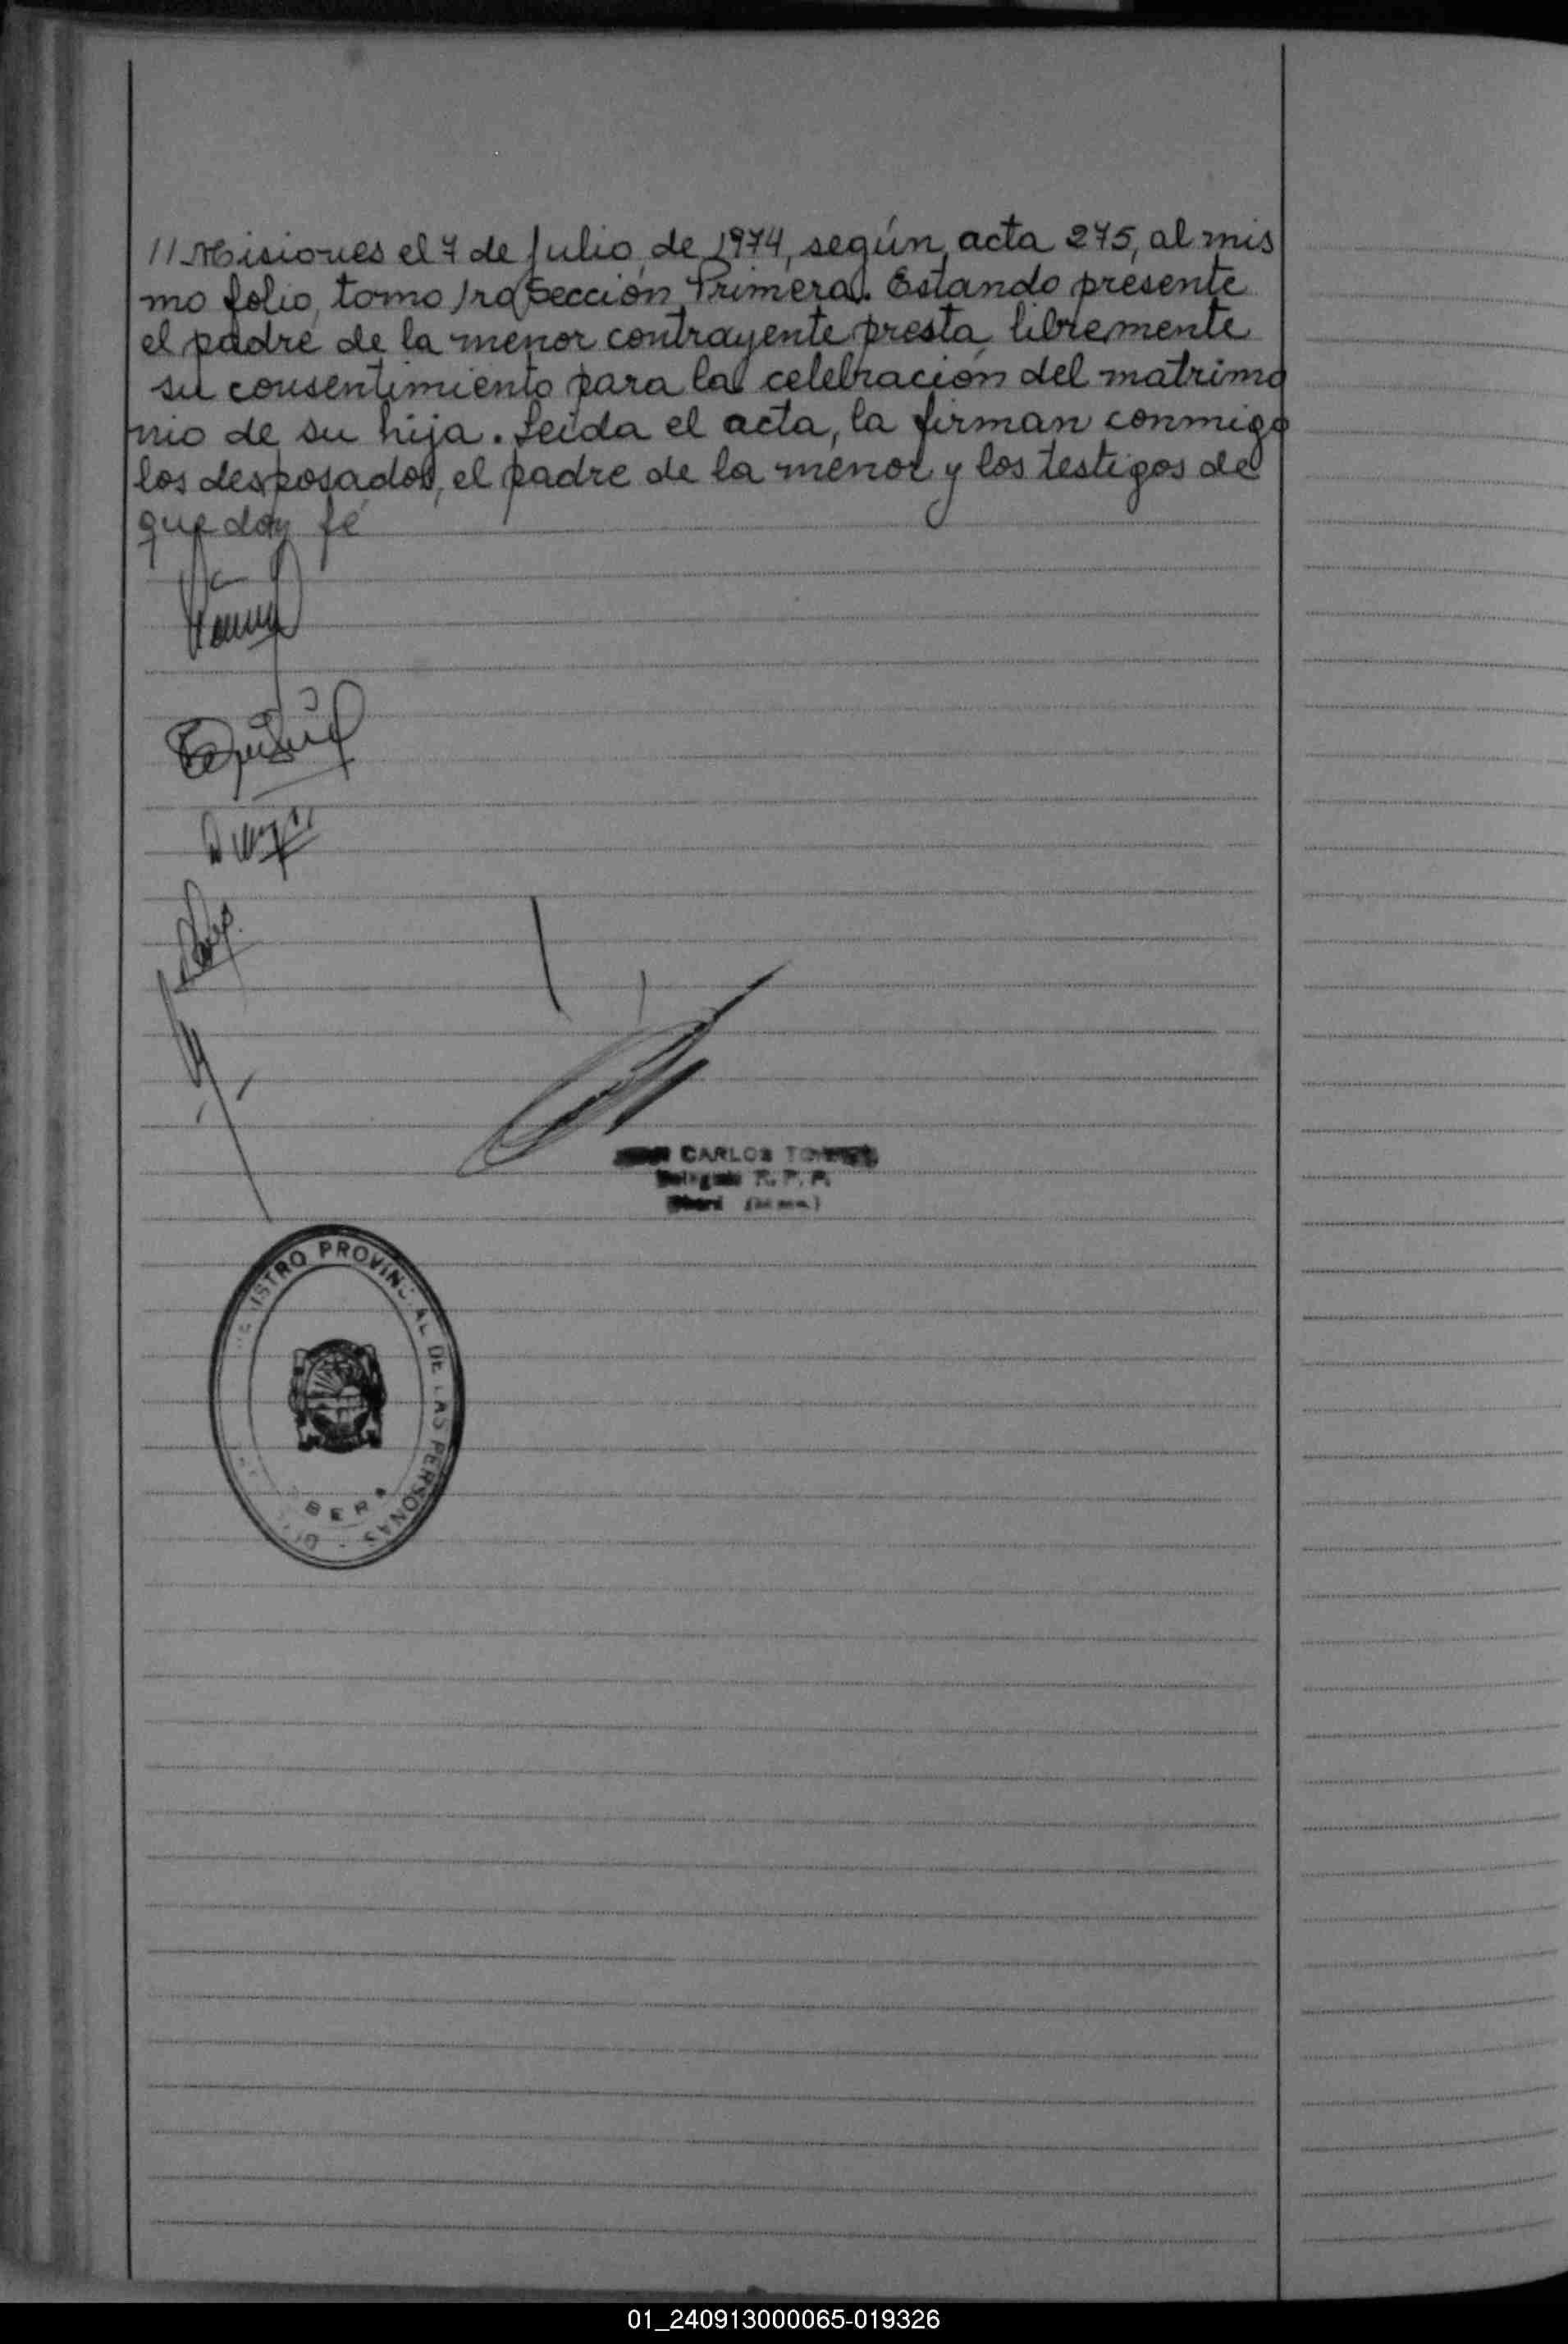 // Misiones el 7 de Julio, de 1974, según acta 275, al mis
mo folio, tomo 1ro Sección Primera. Estando presente
el padre de la menor contrayente presta libremente
su consentimiento para la celebración del matrimo
nio de su hija. Leida el acta, la firman conmigo
los desposados, el padre de la menor y los testigos de
que doy fé
CARLOS
R. P. P.
REGISTRO PROVINCIAL DE LAS PERSONAS
01_240913000065-019326